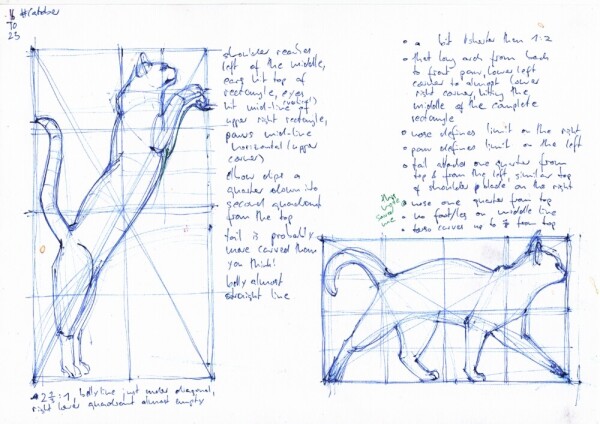 #Catober
10
25
shoulder reaches
left of the middle,
ears hit top of
rectangle, eyes
hit mid-line of
(vertical)
upper right rectangle,
paws mid-line
horizontal (upper
corner)
elbow clips a
quarter down into
second quadrant
from the top
tail is probably
more curved than
you think!
belly almost
straight line
bellyline just under diagonal,
right lower quadrant almost empty
• a bit shorter than 1:2
• that long arch from back
to front paw, lower left
corner to almost lower
right corner, hitting the
middle of the complete
rectangle
• nose defines limit on the right
• paw defines limit on the left
• tail attaches one quarter from
top & from the left, similar top
of shoulder blade on the right
this
helps
me
• nose one quarter from top
• no foot/leg on middle line
• torso curves up to from top